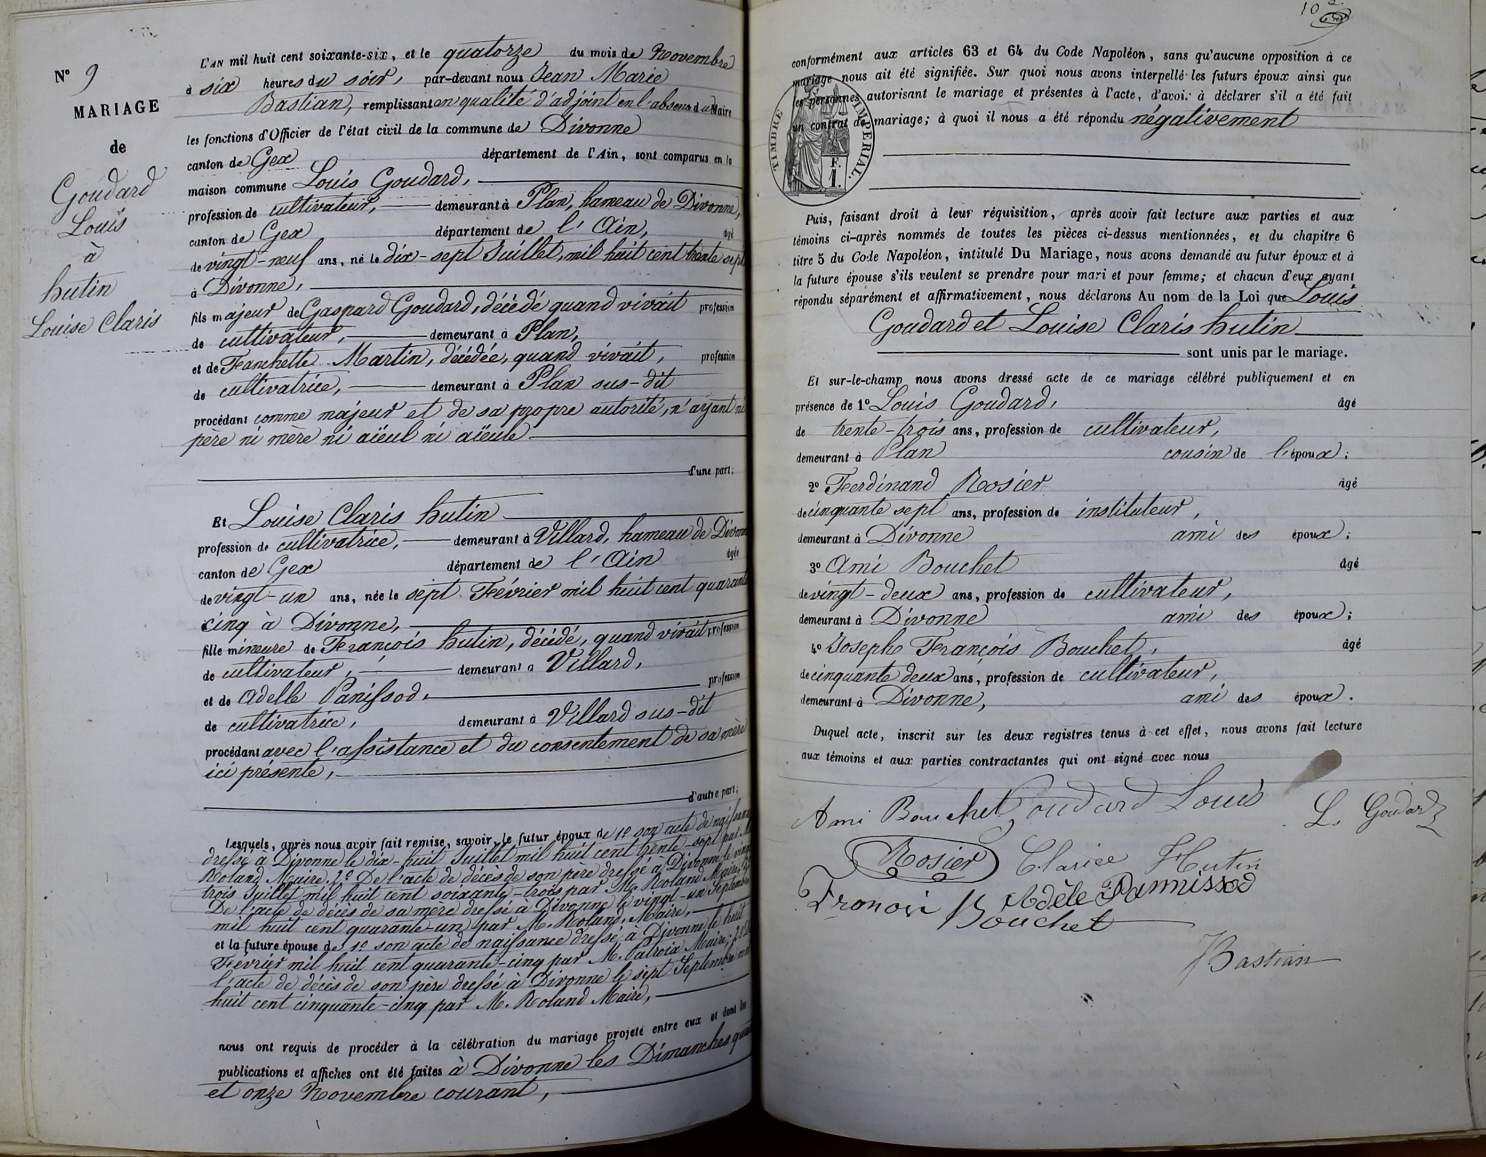 N° 9
MARIAGE
de
Goudard
Louis
à
hutin
Louise Claris
L'AN mil huit cent soixante-six, et le quatorze du mois de Novembre
à six heures du soir, par-devant nous Jean Marie
Bastian, remplissant en qualité d'adjoint en l'absence du Maire
les fonctions d'Officier de l'état civil de la commune de Divonne
canton de Gex département de l'Ain, sont comparus en la
maison commune Louis Goudard,
profession de cultivateur, demeurant à Plan, hameau de Divonne,
canton de Gex département de l'Ain, âgé
de vingt-neuf ans, né le dix-sept Juillet, mil huit cent trente sept
à Divonne,
fils majeur de Gaspard Goudard, décédé quand vivait profession
de cultivateur, demeurant à Plan,
et de Franchette Martin, décédée, quand vivait, profession
de cultivatrice, demeurant à Plan sus-dit
procédant comme majeur et de sa propre autorité, n'ayant ni
père ni mère ni aïeul ni aïeule
d'une part;
Et Louise Claris hutin
profession de cultivatrice, demeurant à Villard, hameau de Divonne
canton de Gex département de l'Ain âgée
de vingt-un ans, née le sept Février mil huit cent quarante
cinq à Divonne,
fille mineure de François hutin, décédé, quand vivait profession
de cultivateur, demeurant à Villard,
et de Adelle Panissod, profession
de cultivatrice, demeurant à Villard sus-dit
procédant avec l'assistance et du consentement de sa mère
ici présente,
d'autre part;
Lesquels, après nous avoir fait remise, savoir, le futur époux de 1° son acte de naissance
dressé à Divonne le dix-huit Juillet mil huit cent trente-sept par M.
Roland Maire, 2° De l'acte de décès de son père dressé à Divonne le vingt
trois Juillet mil huit cent soixante-trois par M. Roland Maire,
De l'acte de décès de sa mère dressé à Divonne le vingt-un Septembre
mil huit cent quarante-un par M. Roland, Maire,
et la future épouse de 1° son acte de naissance dressé à Divonne le huit
Février mil huit cent quarante-cinq par M. Maire;
l'acte de décès de son père dressé à Divonne le sept Septembre mil
huit cent cinquante-cinq par M. Roland Maire,
nous ont requis de procéder à la célébration du mariage projeté entre eux et dont les
publications et affiches ont été faites à Divonne les Dimanches quatre
et onze Novembre courant,
10
conformément aux articles 63 et 64 du Code Napoléon, sans qu'aucune opposition à ce
mariage nous ait été signifiée. Sur quoi nous avons interpellé les futurs époux ainsi que
les personnes autorisant le mariage et présentes à l'acte, d'avoir à déclarer s'il a été fait
un contrat de mariage; à quoi il nous a été répondu négativement
TIMBRE IMPERIAL.
F.
1.
Puis, faisant droit à leur réquisition, après avoir fait lecture aux parties et aux
témoins ci-après nommés de toutes les pièces ci-dessus mentionnées, et du chapitre 6
titre 5 du Code Napoléon, intitulé Du Mariage, nous avons demandé au futur époux et à
la future épouse s'ils veulent se prendre pour mari et pour femme; et chacun d'eux ayant
répondu séparément et affirmativement, nous déclarons Au nom de la Loi que Louis
Goudard et Louise Claris hutin
sont unis par le mariage.
Et sur-le-champ nous avons dressé acte de ce mariage célébré publiquement et en
présence de 1° Louis Goudard, âgé
de trente-trois ans, profession de cultivateur,
demeurant à Plan cousin de l'époux;
2° Ferdinand Rosier âgé
de cinquante sept ans, profession de instituteur,
demeurant à Divonne ami des époux;
3° Ami Bouchet âgé
de vingt-deux ans, profession de cultivateur,
demeurant à Divonne ami des époux;
4° Josephe François Bouchet, âgé
de cinquante deux ans, profession de cultivateur,
demeurant à Divonne, ami des époux.
Duquel acte, inscrit sur les deux registres tenus à cet effet, nous avons fait lecture
aux témoins et aux parties contractantes qui ont signé avec nous
Ami Bouchet Goudard Louis L. Goudard
Rosier Clarice Hutin
Adèle Pannissod
Bouchet
Bastian